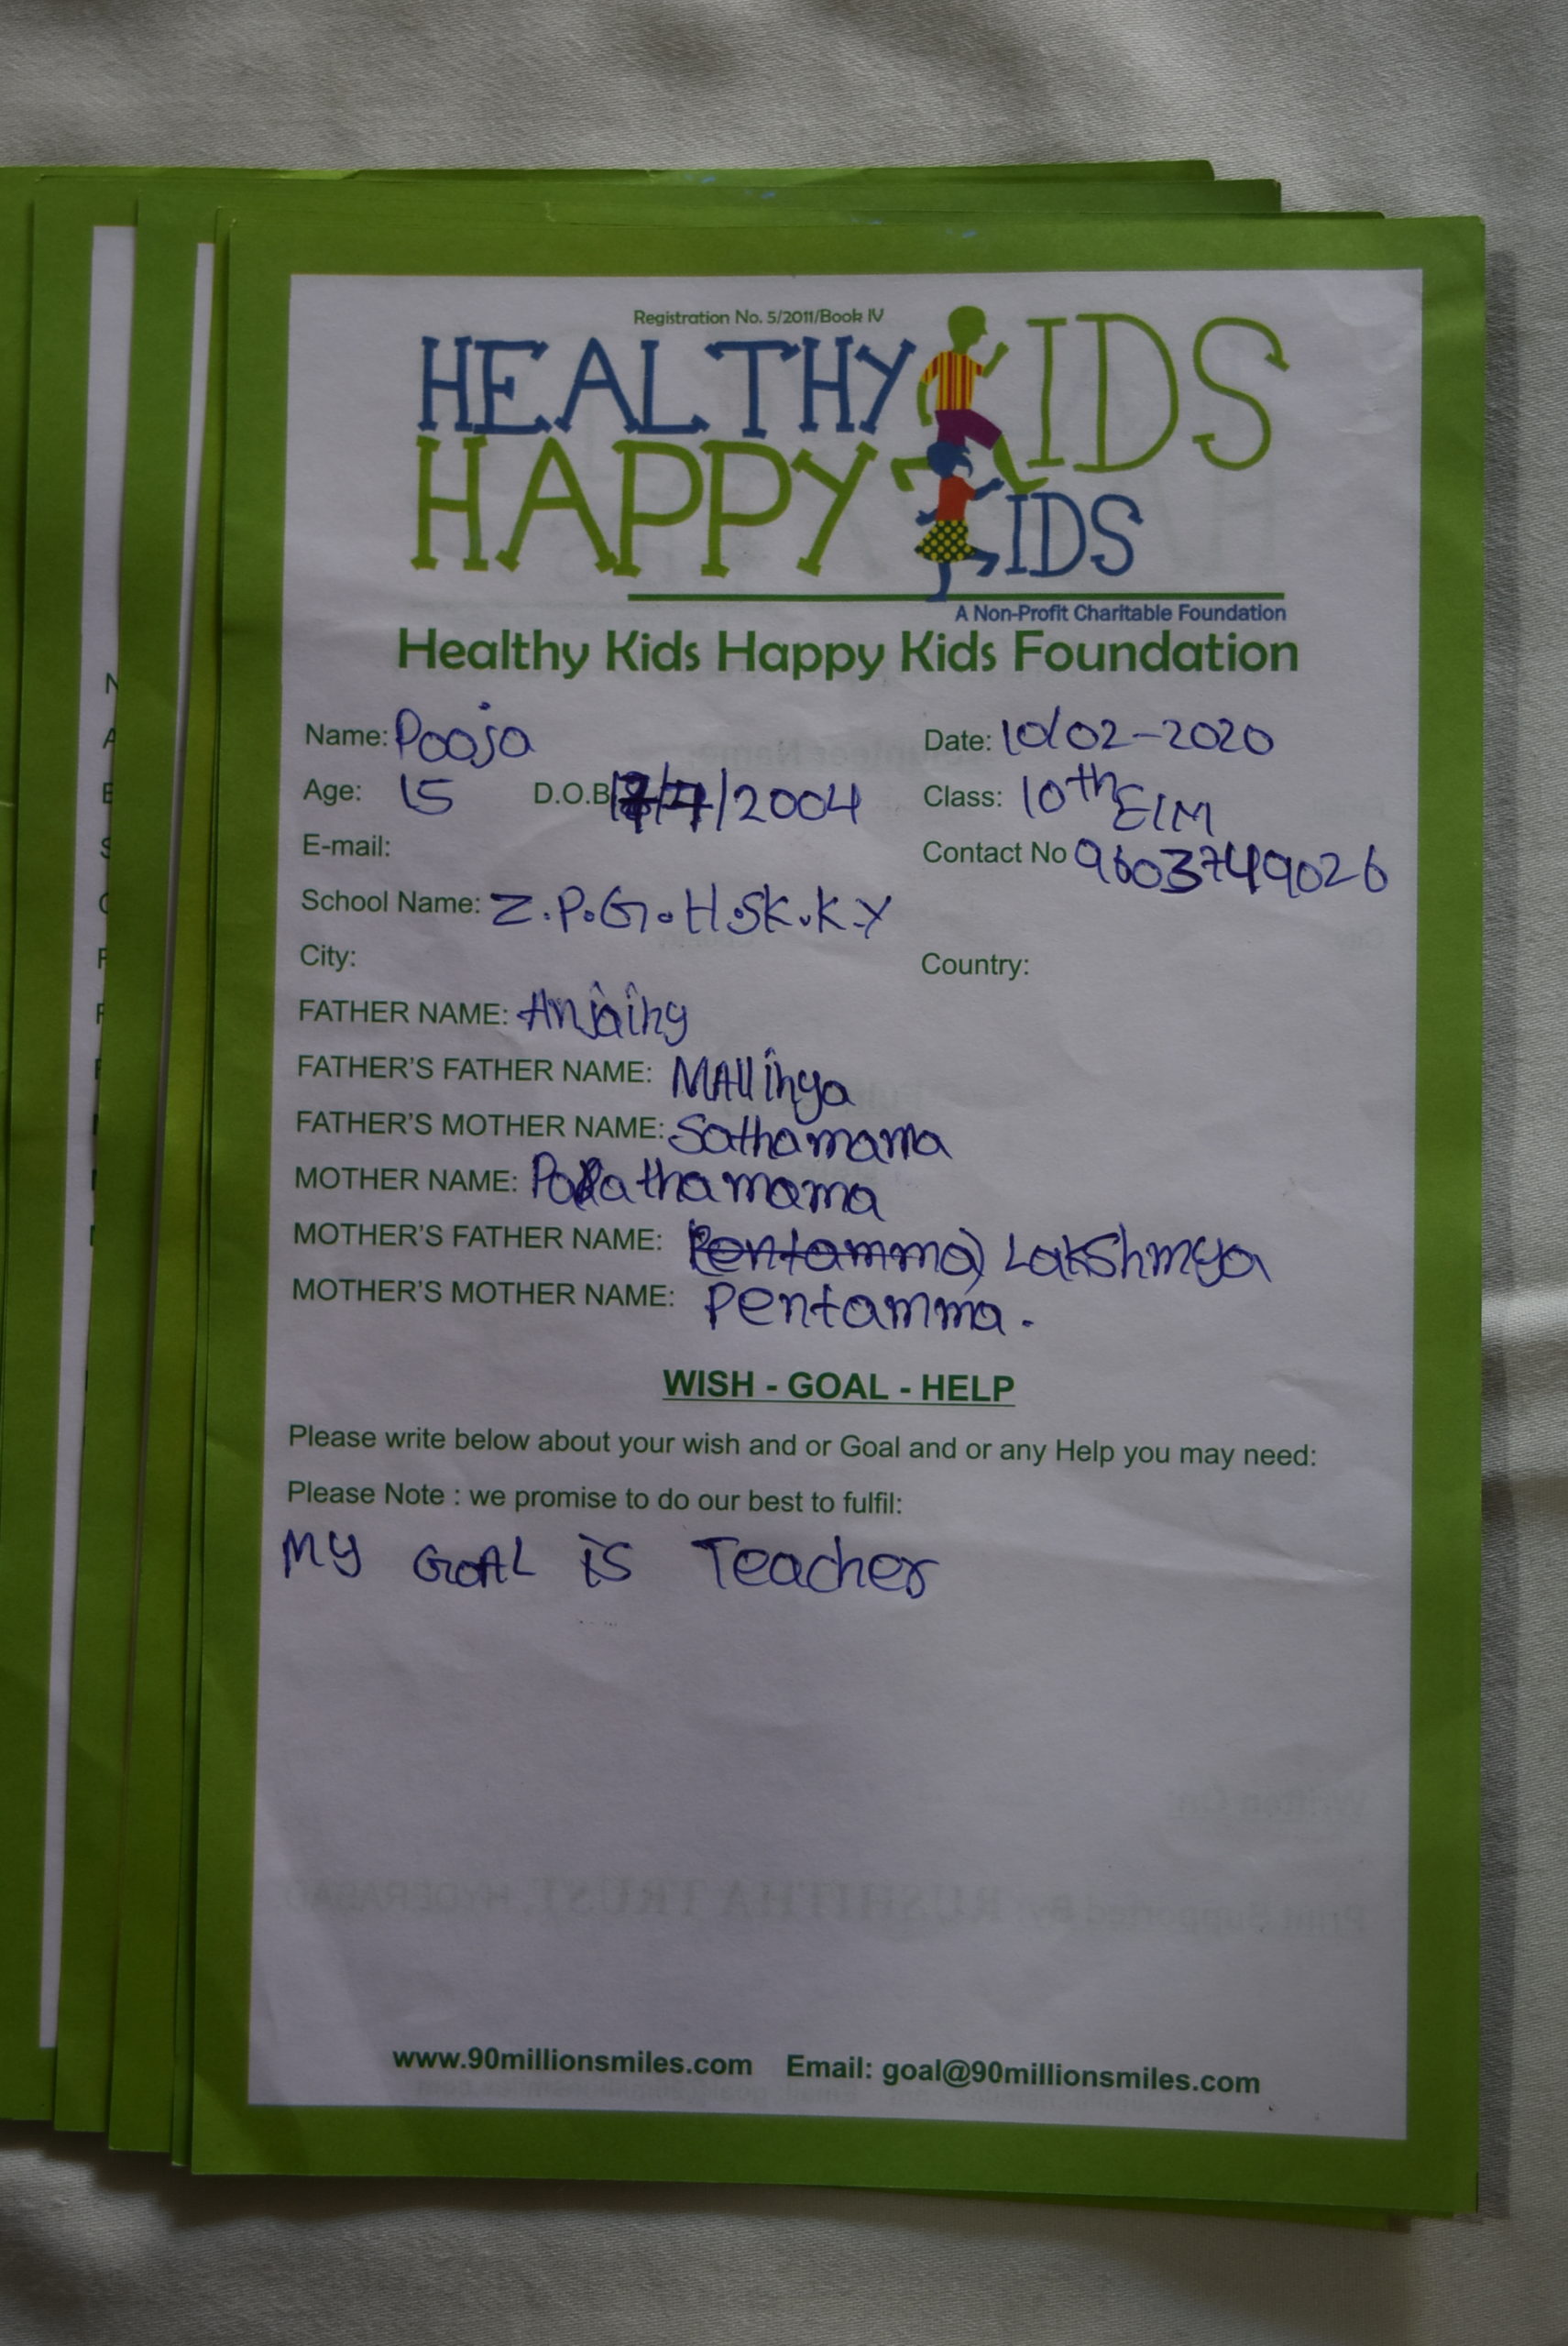 Registration No. 5/2011/Book IV
HEALTHY KIDS
HAPPY KIDS
A Non-Profit Charitable Foundation
Healthy Kids Happy Kids Foundation
Name: Pooja Date: 10/02-2020
Age: 15 D.O.B /2004 Class: 10th E/M
E-mail: Contact No 9603749026
School Name: Z.P.G.H.SK.K.Y
City: Country:
FATHER NAME: Anjaihy
FATHER'S FATHER NAME: MAllihya
FATHER'S MOTHER NAME: Sathamama
MOTHER NAME:
MOTHER'S FATHER NAME: Pentamma) Lakshmya
MOTHER'S MOTHER NAME: Pentamma.
WISH - GOAL - HELP
Please write below about your wish and or Goal and or any Help you may need:
Please Note : we promise to do our best to fulfil:
MY GOAL is Teacher
www.90millionsmiles.com Email: goal@90millionsmiles.com